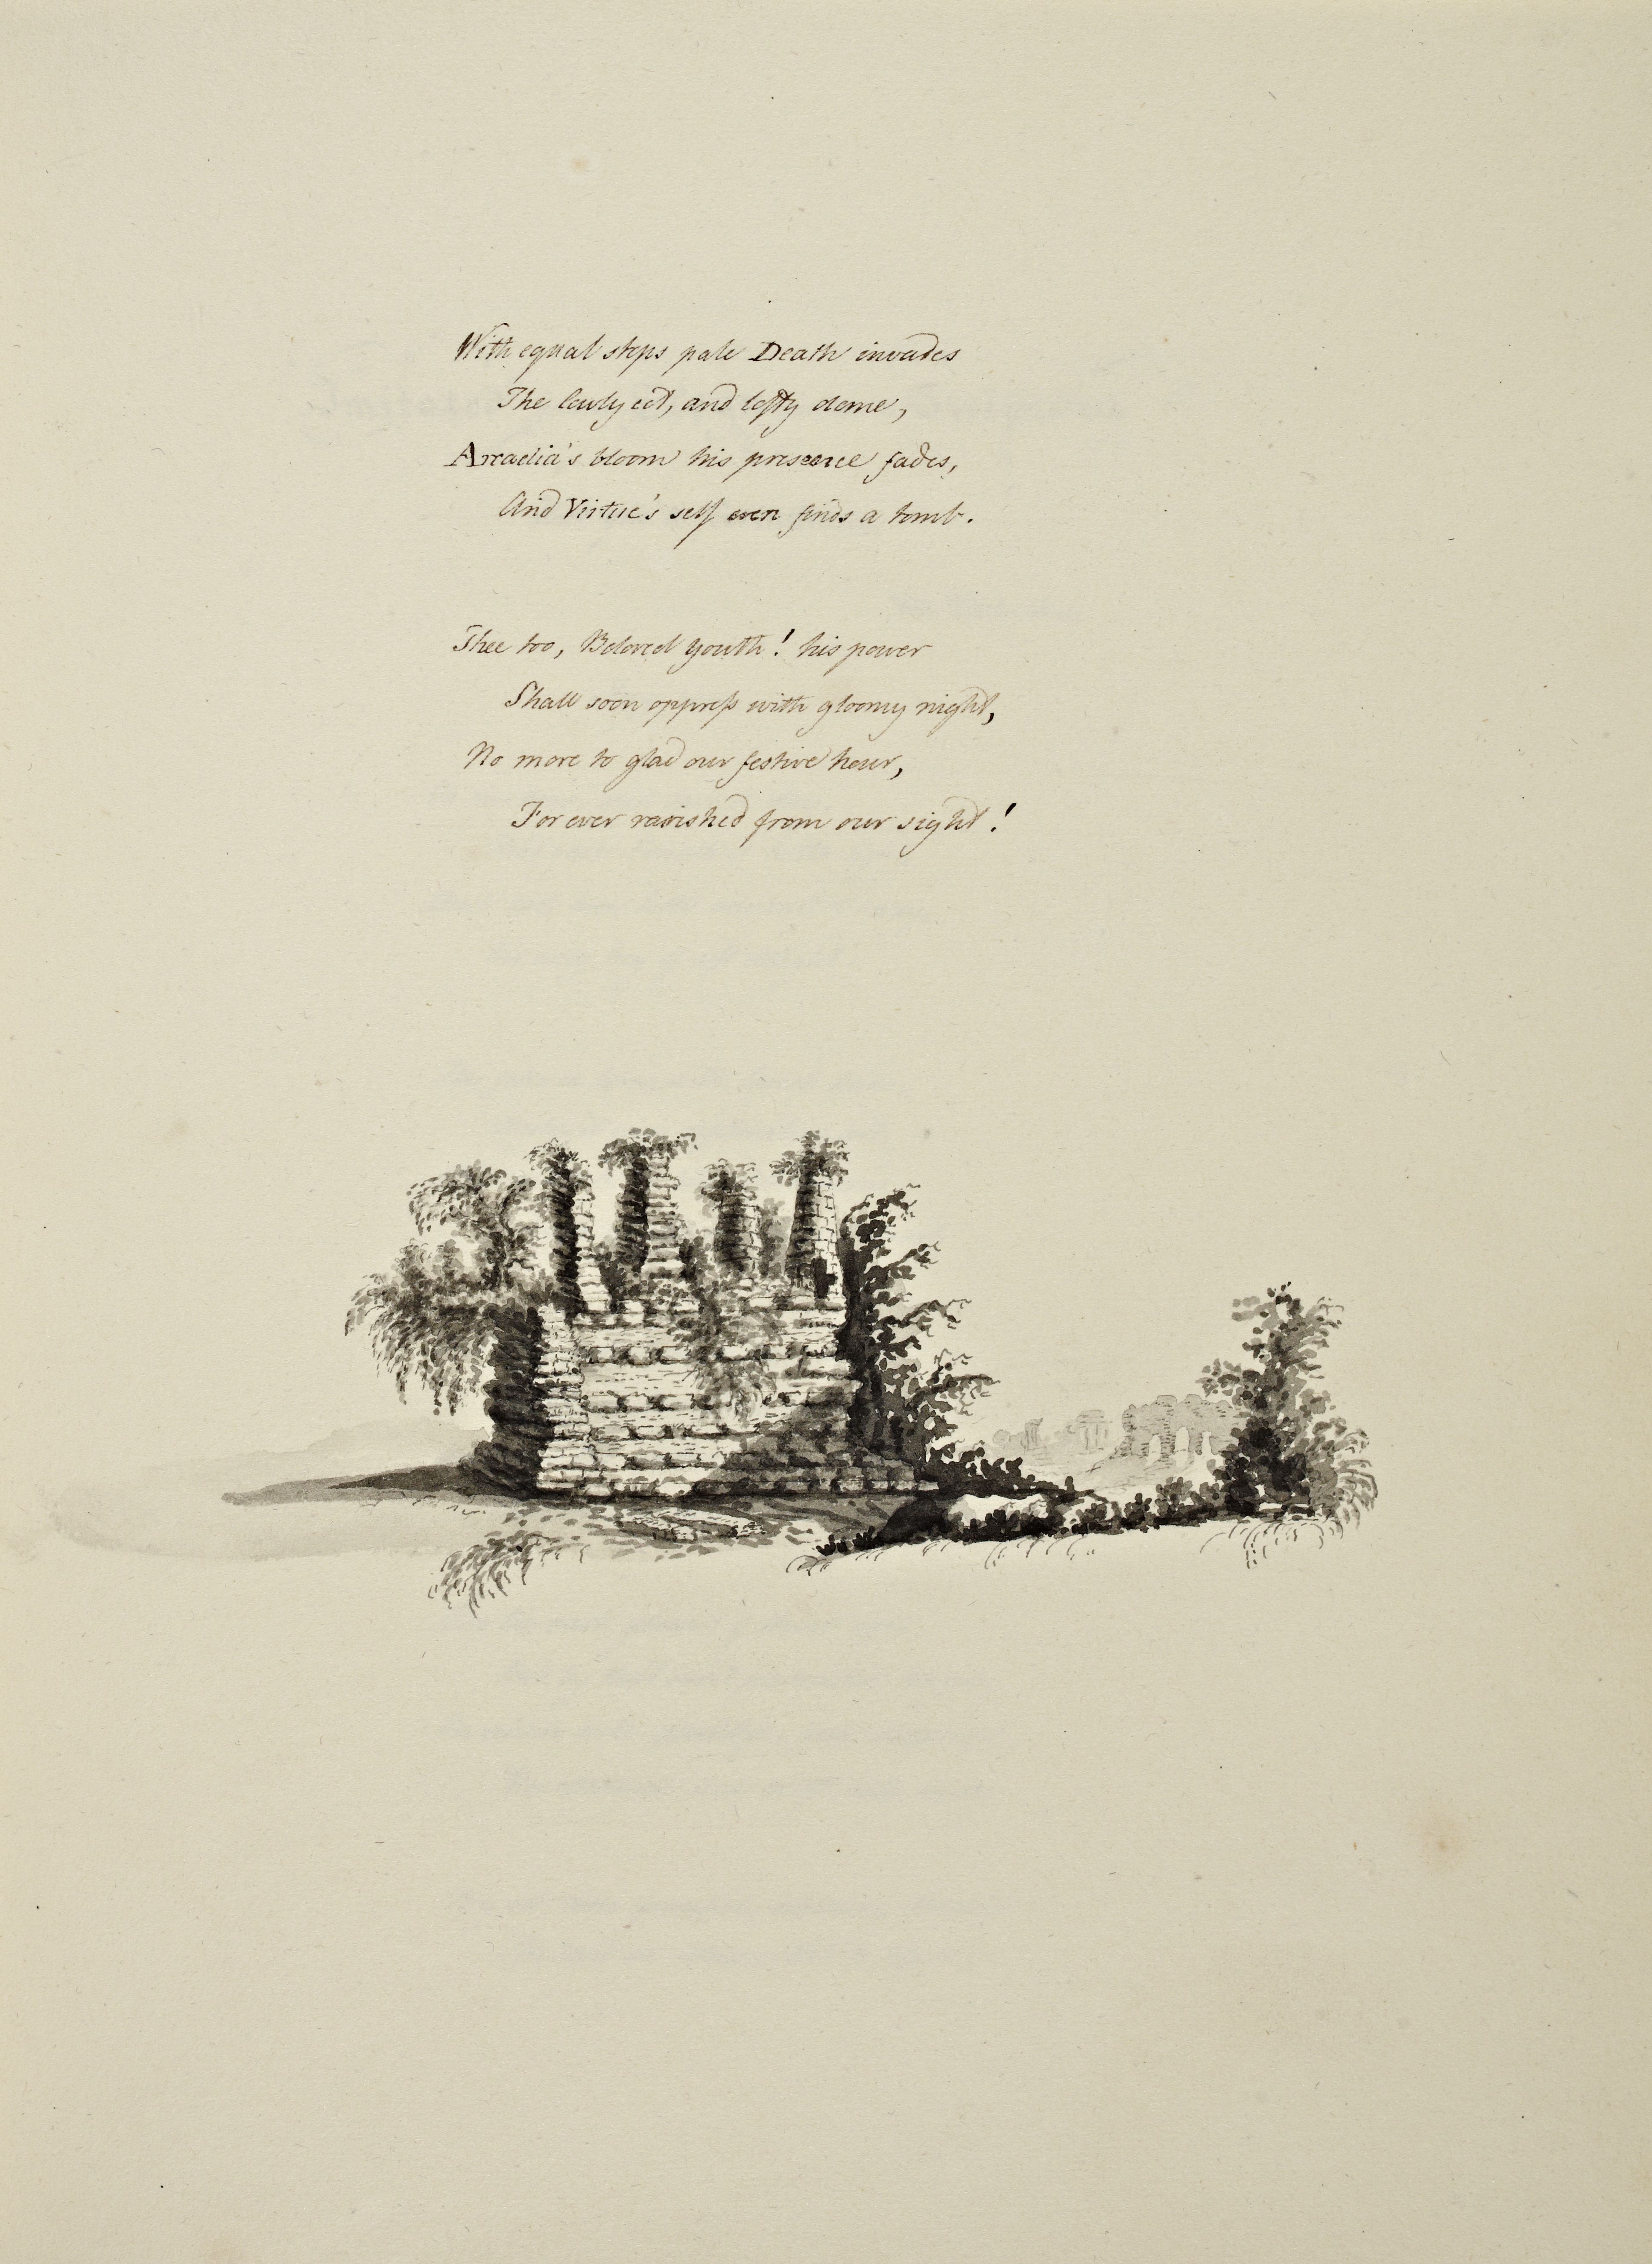 With equal steps pale Death invades
The lowly cot, and lofty dome,
Arcadia's bloom his presence fades,
And Virtue's self even finds a tomb.
Thee too, Beloved youth! his power
Shall soon oppreſs with gloomy night,
No more to glad our festive hour,
For ever ravished from our sight!